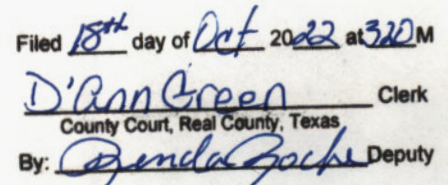 Filed 18th day of Oct 2022 at 320 M
D'Ann Green Clerk
County Court, Real County, Texas
By: Brenda Rocha Deputy